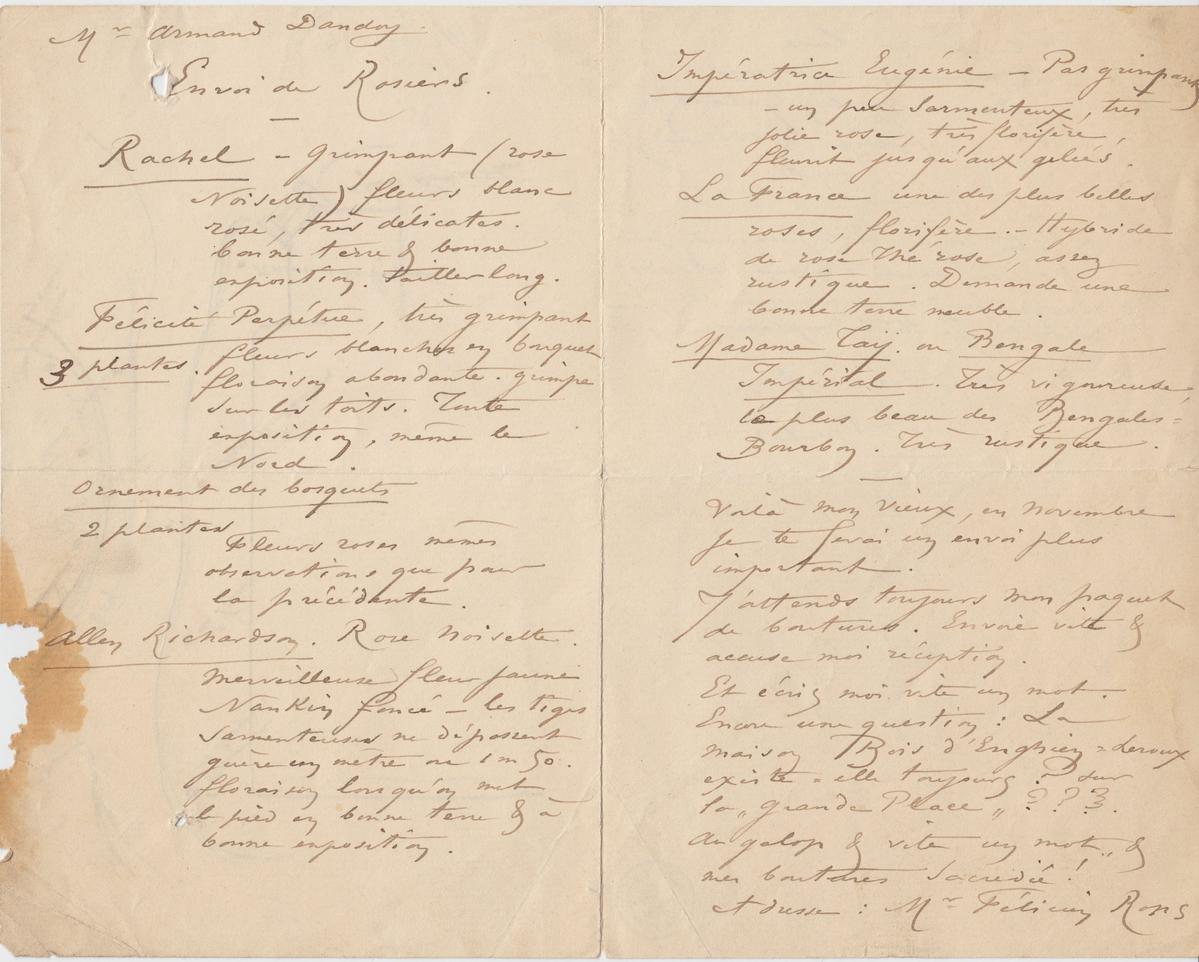 Mr Armand Dandoy.
Envoi de Rosiers.
Rachel - grimpant (rose
Noisette) fleurs blanc
rosé, très délicates.
bonne terre & bonne
exposition. Tailler long.
Félicité Perpétue, très grimpant
3 plantes. fleurs blanches en bouquet
floraison abondante. grimpe
sur les toits. Toute
exposition, même le
Nord.
Ornement des bosquets
2 plantes
Fleurs roses mêmes
observations que pour
la précédente.
Allen Richardson. Rose Noisette.
Merveilleuse fleur jaune
Nankin foncé - les tiges
sarmenteuses ne dépassent
guère un mètre ou 1m50.
floraison lorsqu'on met
le pied en bonne terre & à
bonne exposition.
Impératrice Eugénie - Pas grimpant
- un peu sarmenteux, très
jolie rose, très florifère,
fleurit jusqu'aux gelées.
La France une des plus belles
roses, florifère. - Hybride
de rose Thé rose, assez
rustique. Demande une
bonne terre meuble.
Madame Taÿ. ou Bengale
Impérial. Très vigoureuse,
le plus beau des Bengales=
Bourbon. Très rustique.
Voilà mon vieux, en novembre
je te ferai un envoi plus
important.
J'attends toujours mon paquet
de boutures. Envoie vite &
accuse moi réception.
Et écris moi vite un mot.
Encore une question: La
maison Bois d'Enghien=Leroux
existe=elle toujours? sur
la „grande Place„ ? ? ?.
Au galop & vite un mot, &
mes boutures sacredié!
Adresse: Mr Félicien Rops